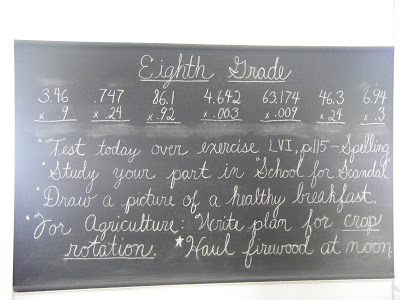 Eighth Grade
3.46 .747 86.1 4.642 63.174 46.3 6.94
x .9 x .24 x .92 x .003 x .009 x 24 x .3
"Test today over exercise LVI, p115-Spelling
"Study your part in "School for Scandal"
"Draw a picture of a healthy breakfast.
"For Agriculture: "Write plan for crop
rotation. ★Haul firewood at noon